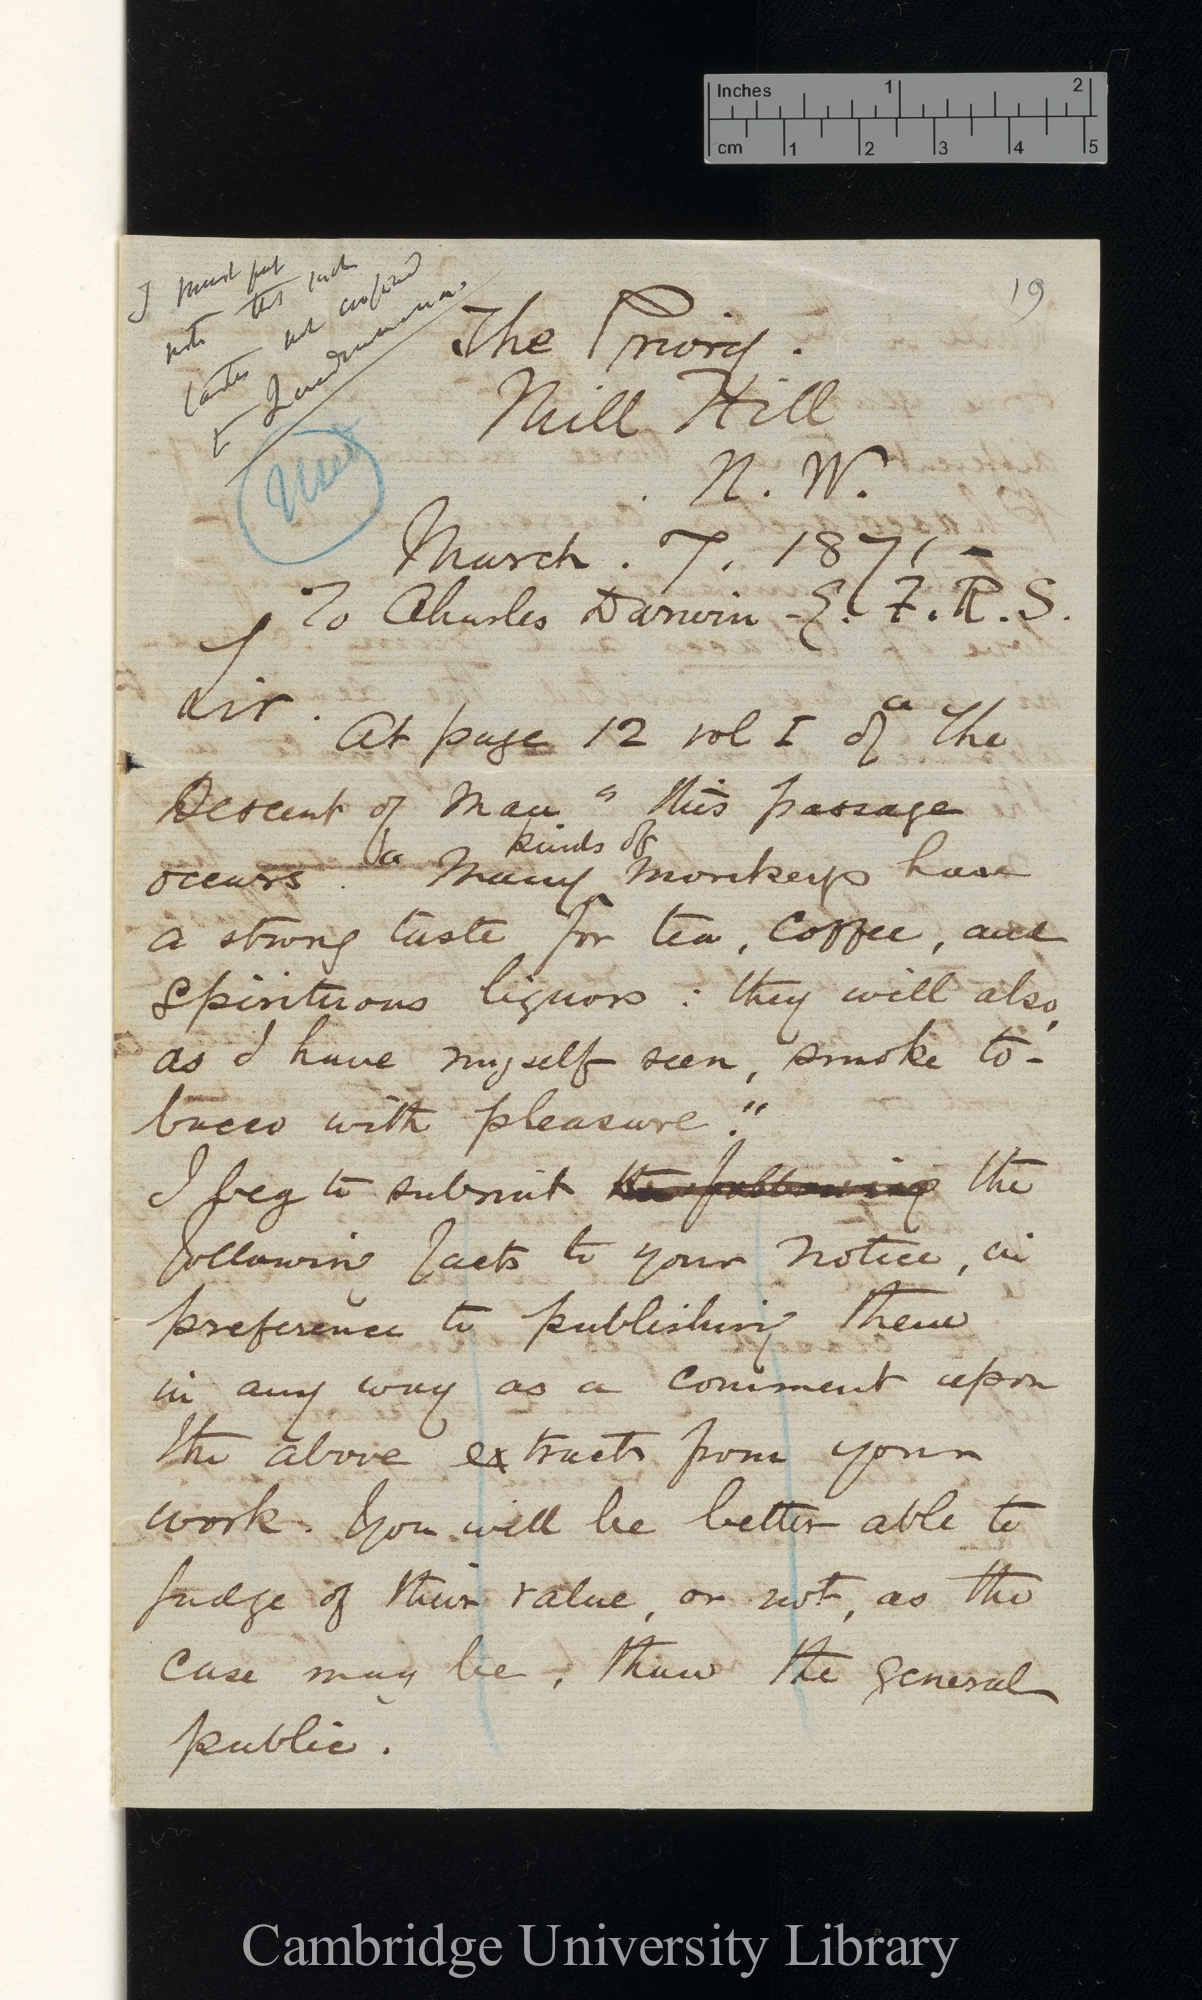 Inches 1 2
cm 1 2 3 4 5
19
I must put
note that such
tastes not confined
to Quadrumana.
Used
The Priory.
Mill Hill
N. W.
March. 7. 1871 -
To Charles Darwin E. F. R. S.
Sir.
At page 12 vol I of "The
Descent of Man" this passage
occurs. "Many kinds of monkeys have
a strong taste for tea, coffee, and
spirituous liquors: they will also,
as I have myself seen, smoke to-
bacco with pleasure."
I beg to submit the following the
following facts to your notice, in
preference to publishing them
in any way as a comment upon
the above extracts from your
work. You will be better able to
judge of their value, or not, as the
case may be, than the general
public.
Cambridge University Library